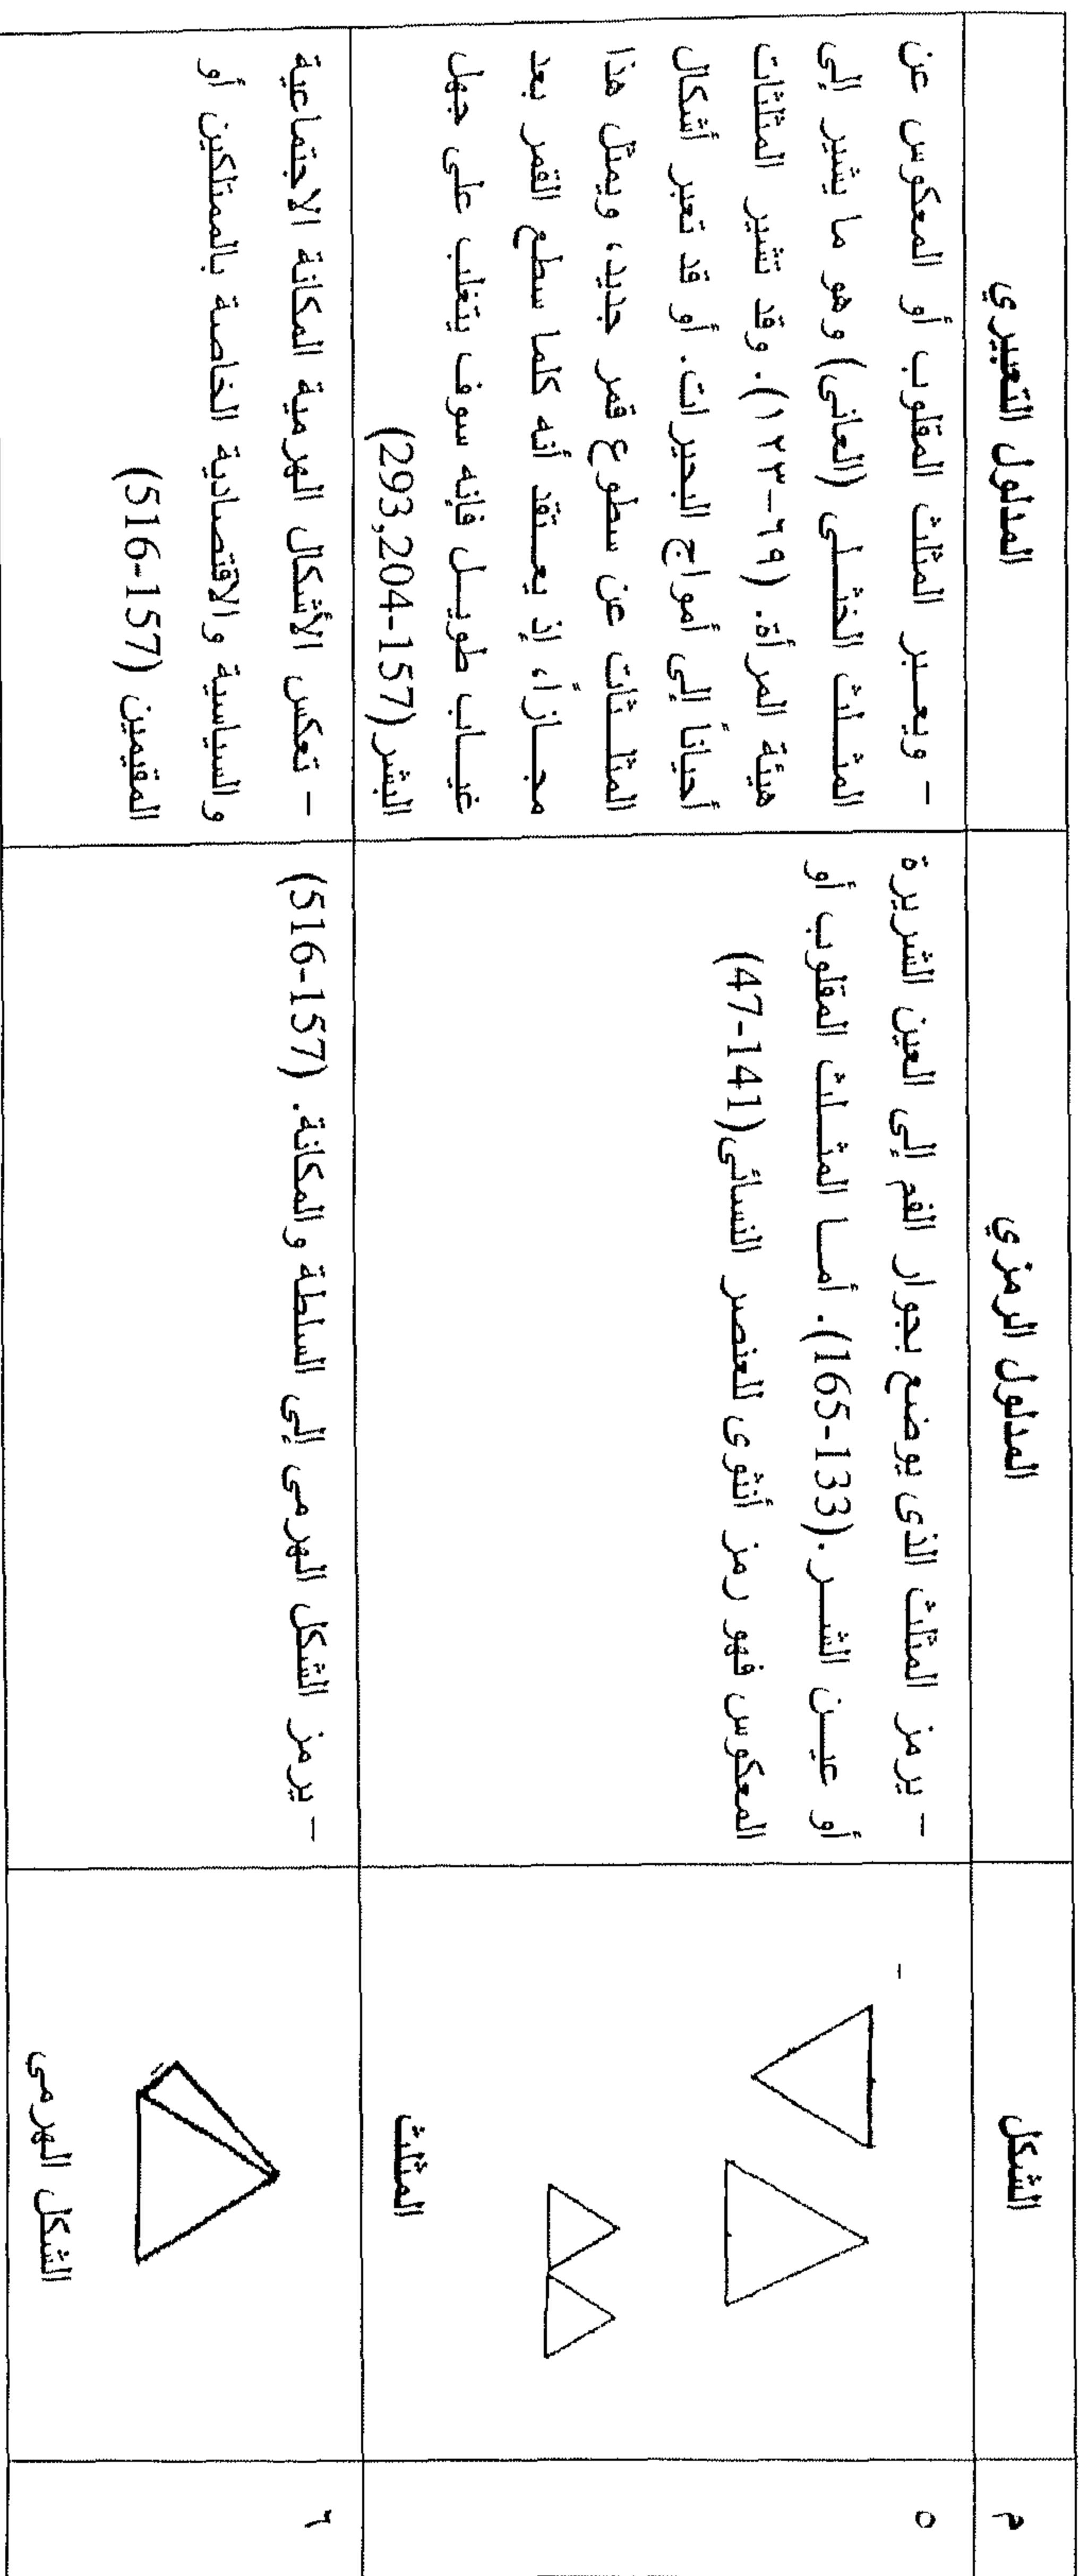 م
الشكل
المدلول الرمزي
المدلول التعبيري
٥
-
المثلث
- يرمز المثلث الذى يوضع بجوار الفم إلى العين الشريرة
أو عين الشر.(133-165). أما المثلث المقلوب أو
المعكوس فهو رمز أنثوى للعنصر النسائى(141-47)
- ويعبر المثلث المقلوب أو المعكوس عن
المثلث الخثلى (العانى) وهو ما يشير إلى
هيئة المرأة. (٦٩-١٢٣). وقد تشير المثلثات
أحياناً إلى أمواج البحيرات. أو قد تعبر أشكال
المثلثات عن سطوع قمر جديد، ويمثل هذا
مجازاً، إذ يعتقد أنه كلما سطع القمر بعد
غياب طويل فإنه سوف يتغلب على جهل
البشر(157-293,204)
٦
الشكل الهرمى
- يرمز الشكل الهرمى إلى السلطة والمكانة. (157-516)
- تعكس الأشكال الهرمية المكانة الاجتماعية
والسياسية والاقتصادية الخاصة بالممتلكين أو
المقيمين (157-516)